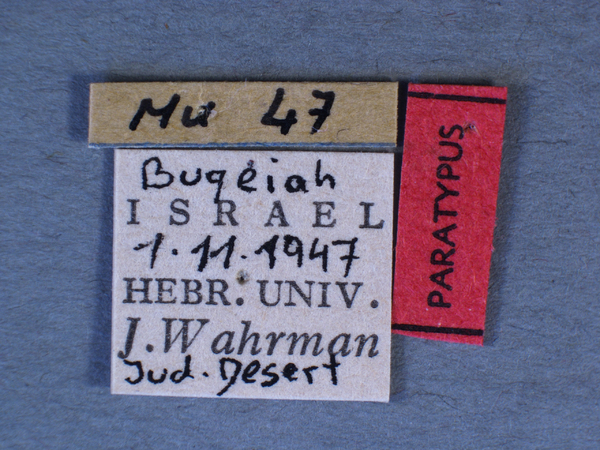 Mu 47
Buqeiah
ISRAEL
1.11.1947
HEBR. UNIV.
J. Wahrman
Jud. Desert
PARATYPUS